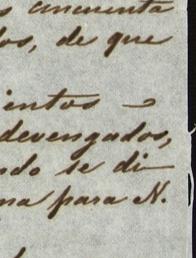 s cincuenta
los, de que
ientos
devengados,
ndo se di-
ma para N.